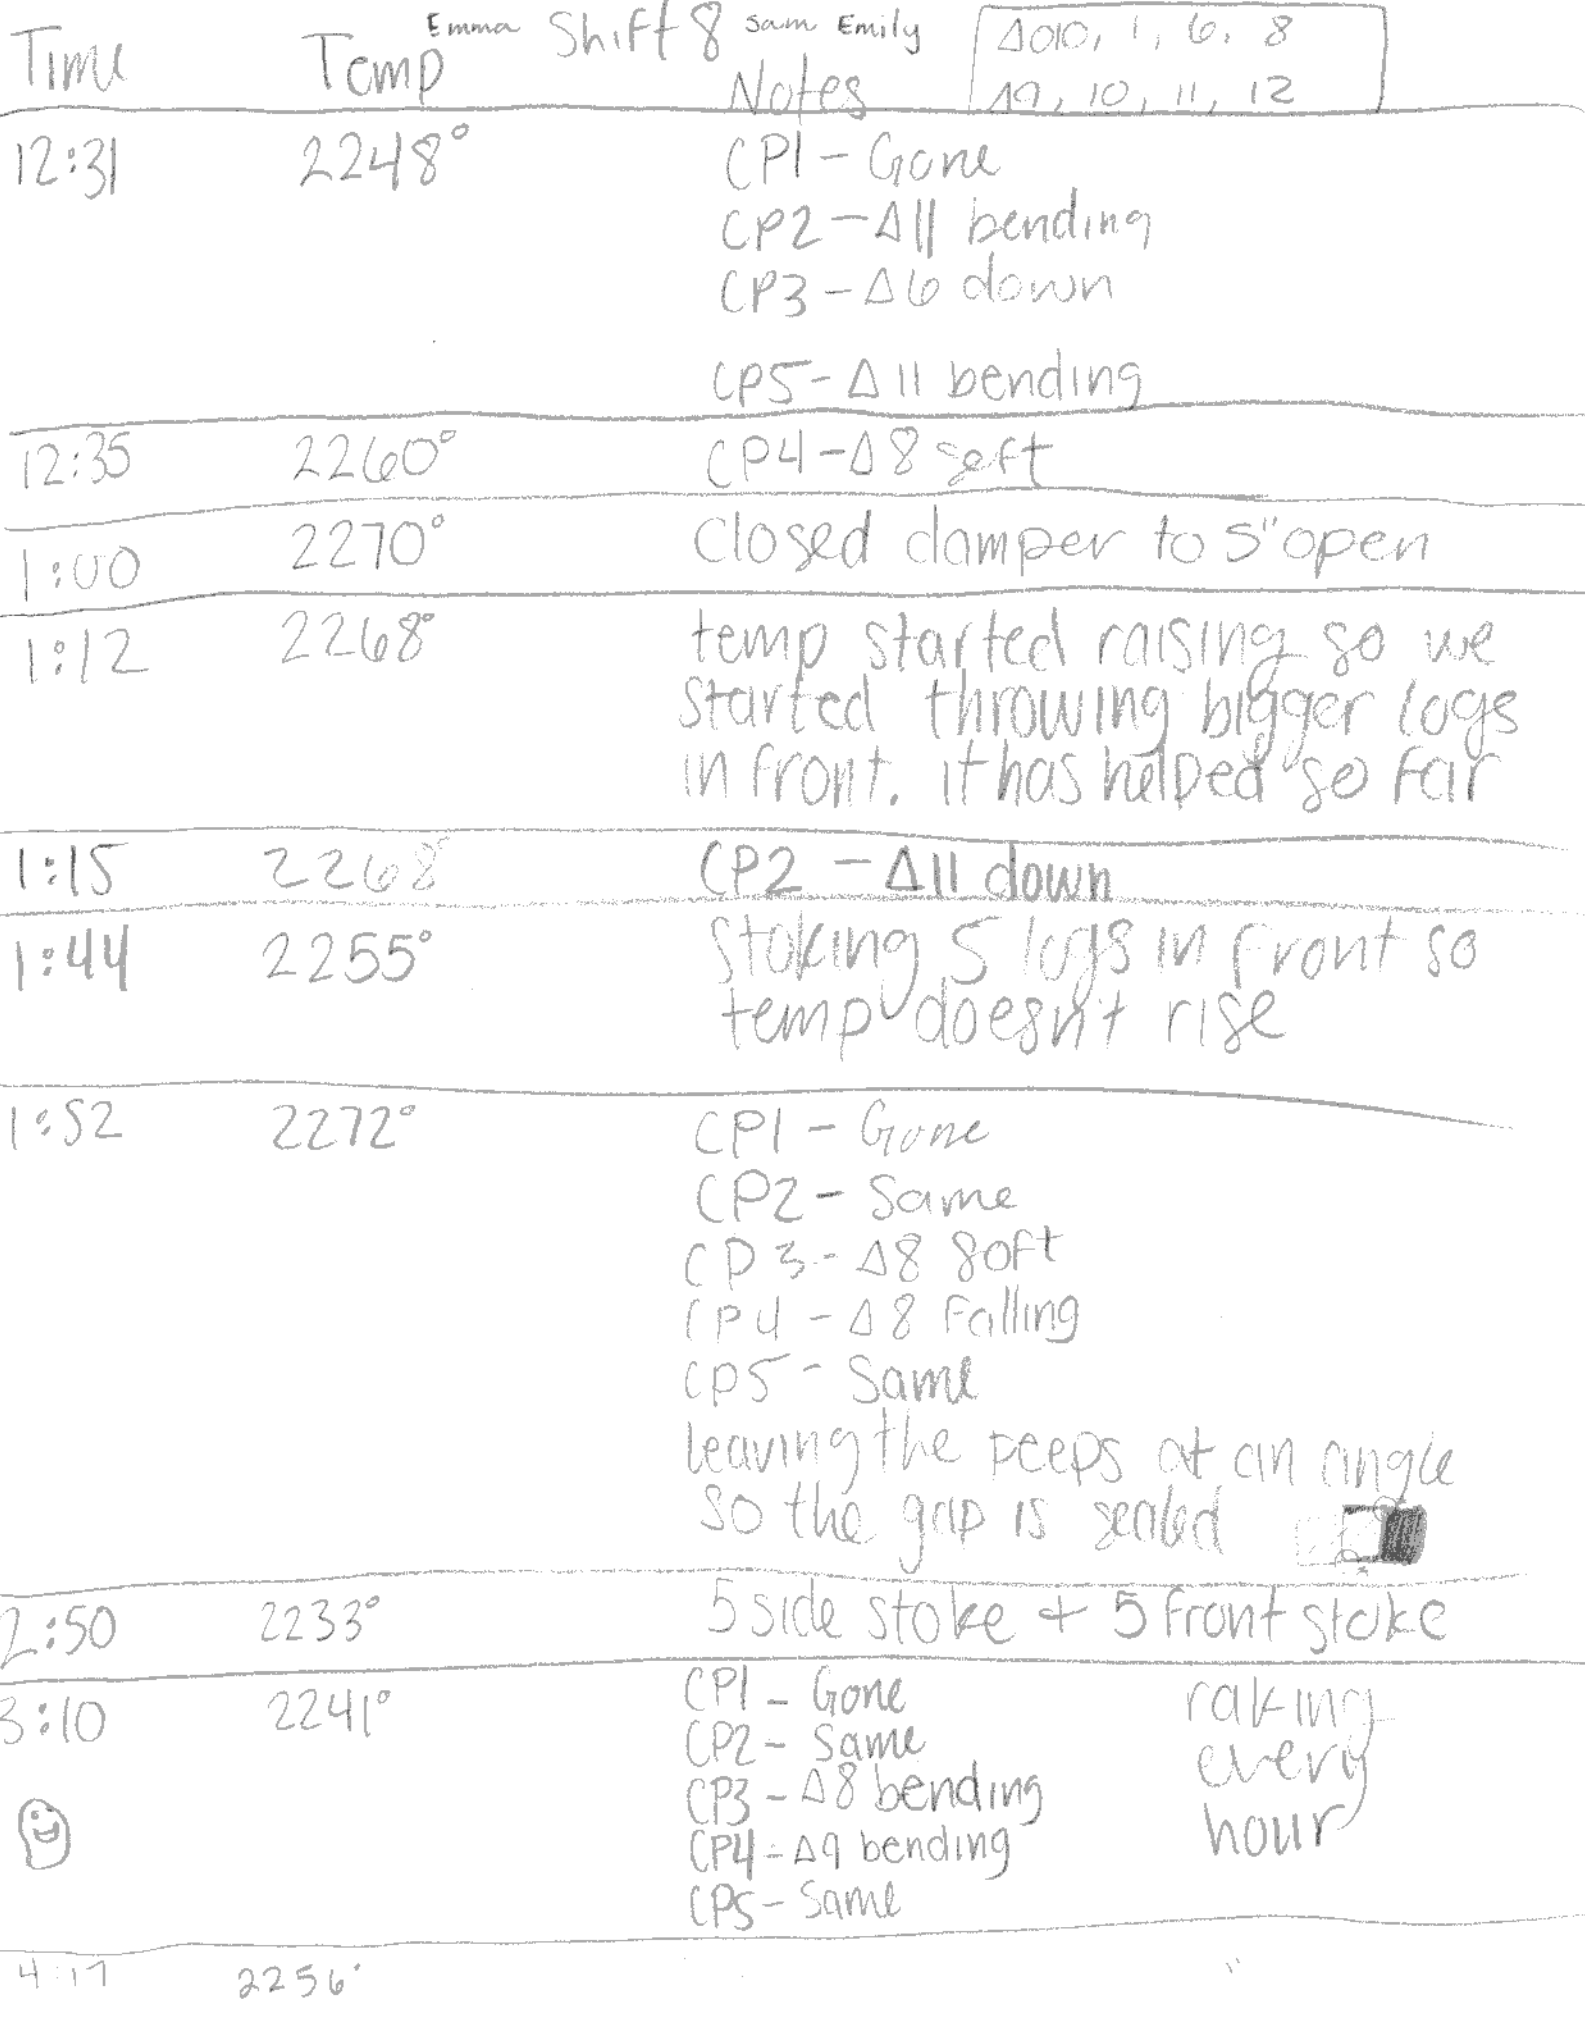 Emma Shift 8 Sam Emily
Time Temp Notes
Δ010, 1, 6, 8
Δ9, 10, 11, 12
12:31 2248° CP1 - Gone
CP2 - Δ11 bending
CP3 - Δ6 down
CP5 - Δ11 bending
12:35 2260° CP4 - Δ8 soft
1:00 2270° Closed damper to 5" open
1:12 2268° temp started raising so we
started throwing bigger logs
in front. it has helped so far
1:15 2268° CP2 - Δ11 down
1:44 2255° Stoking 5 logs in front so
temp doesn't rise
1:52 2272° CP1 - Gone
CP2 - Same
CP3 - Δ8 soft
CP4 - Δ8 Falling
CP5 - Same
leaving the peeps at an angle
so the gap is sealed
2:50 2233° 5 side stoke + 5 front stoke
3:10 2241° CP1 - Gone
CP2 - Same
CP3 - Δ8 bending
CP4 - Δ9 bending
CP5 - Same
raking
every
hour
4:17 2256°